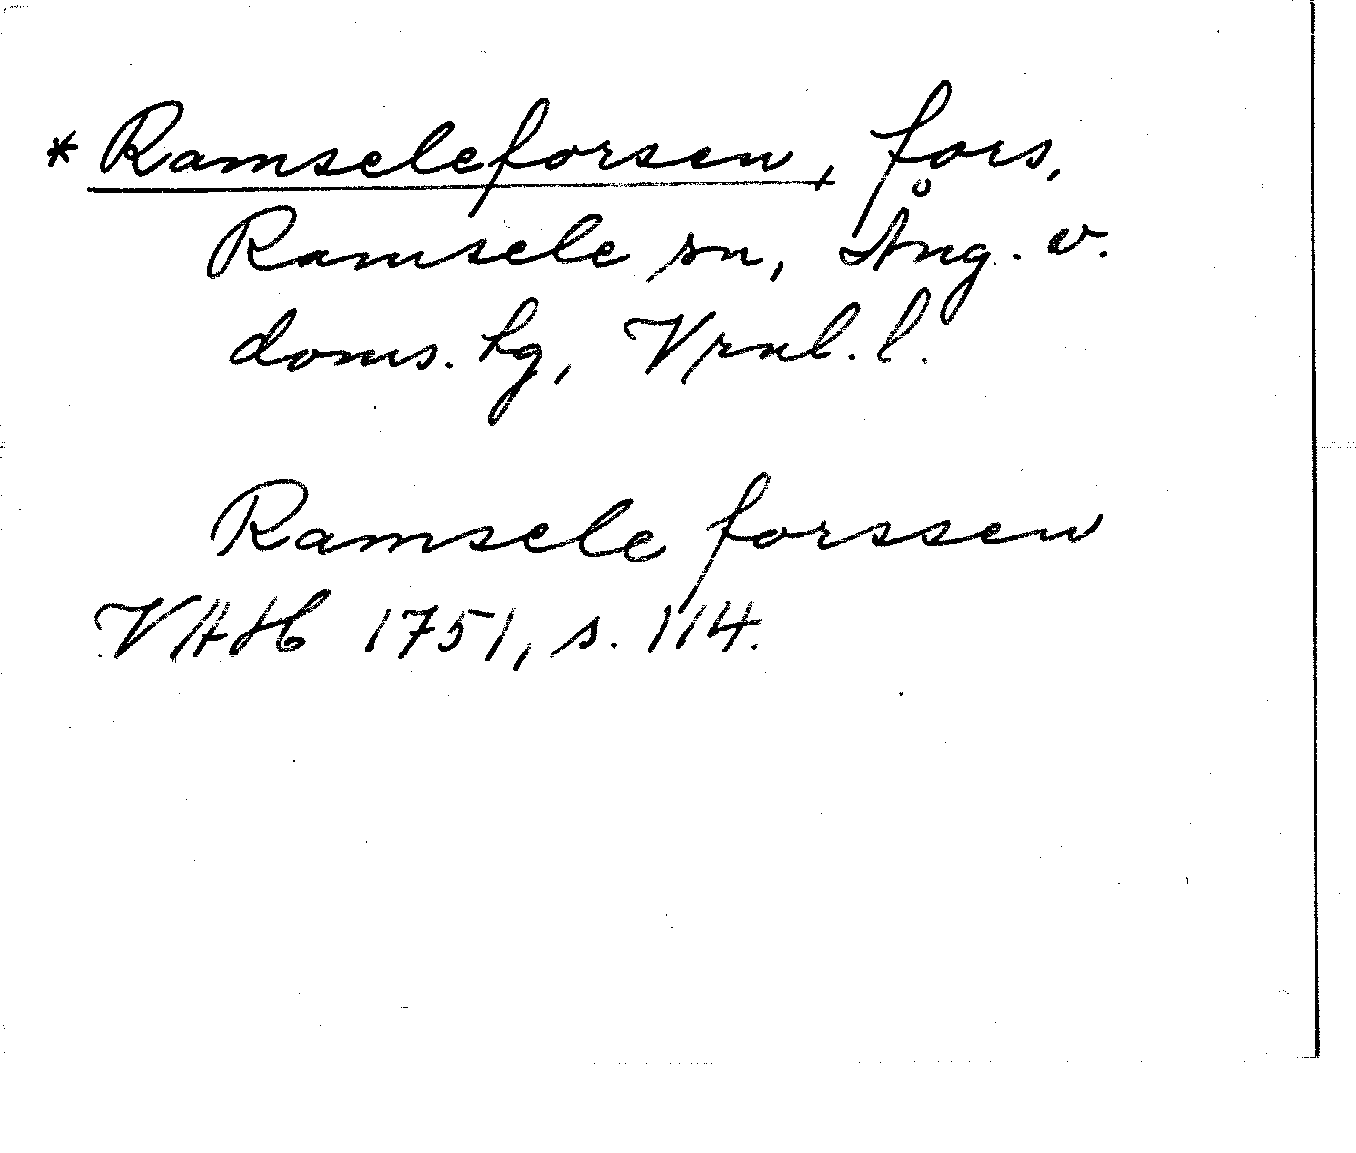 * Ramseleforsen, fors,
Ramsele sn, Ång. v.
doms. hg, Vrnl. l.
Ramsele forssen
VAH 1751, s. 114.